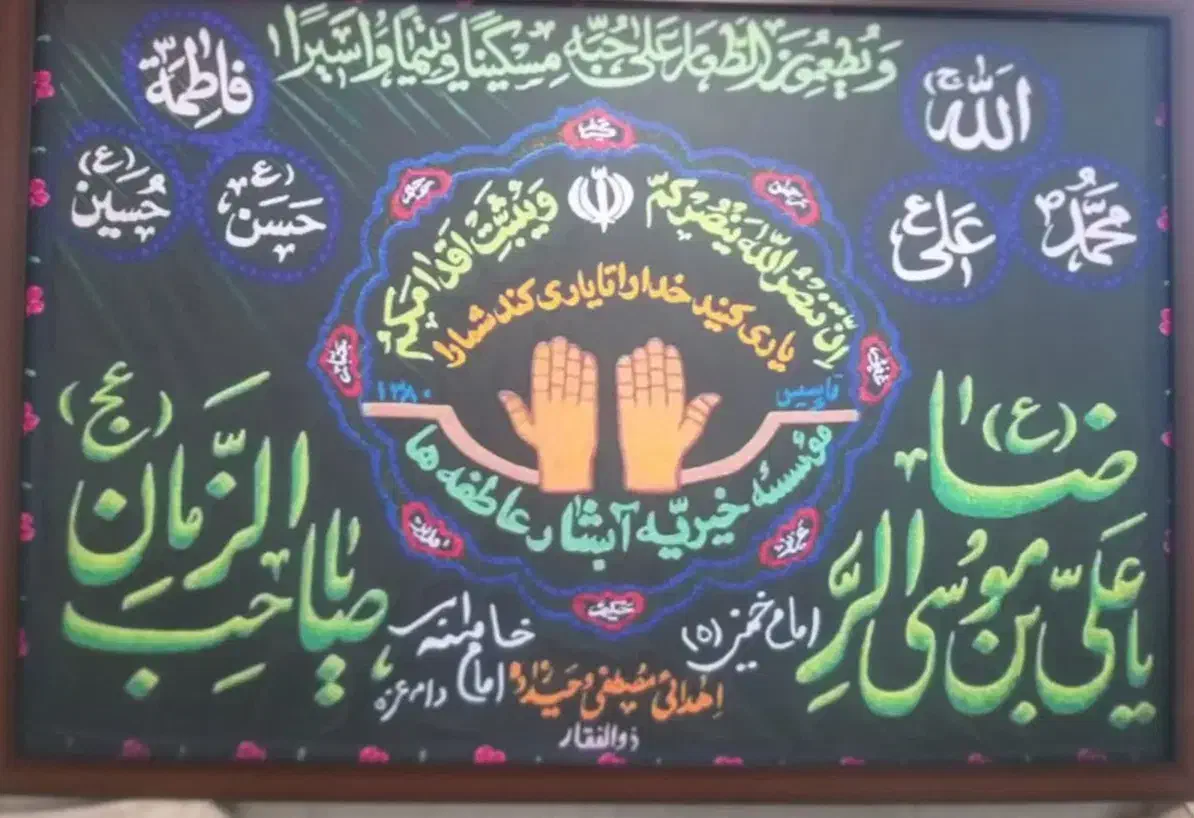 وَيُطعِمُونَ الطَّعامَ عَلىٰ حُبِّهِ مِسكينًا وَيَتيمًا وَاَسيرًا
اللّه (ج)
محمّد ص
علی ع
فاطِمَة
حَسَن (ع)
حُسین (ع)
اِنْ تَنصُرُ اللّه یَنْصُرْکُمْ وَیُثَبِّتْ اَقدامَکُمْ
یاری کنید خدا را تا یاری کند شما را
تاسیس ۱۳۸۰
مؤسسه خیریّه آبشار عاطفه ها
یا عَلیّ بن موُسَی الرِّضا (ع)
یا صاحِبَ الزَّمان (عج)
امام خمینی (ه)
امام خامنه ای
دام عزه
اهدائی مصطفی وحیدزاده
ذوالفقار